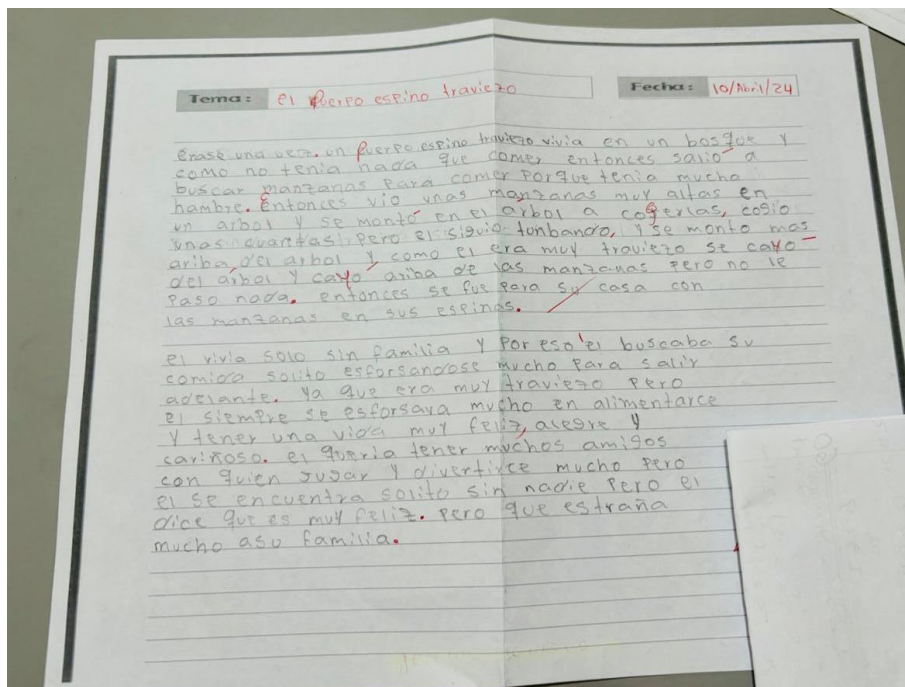 Tema: el puerpo espino traviezo Fecha: 10/Abril/24
érase una vez. un puerpo espino traviezo vivia en un bosque y
como no tenia nada que comer entonces salio a
buscar manzanas para comer porque tenia mucha
hambre. Entonces vio unas manzanas muy altas en
un arbol y se montó en el arbol a cogerlas, cogio
unas cuantas pero el siguio tunbando, y se monto mas
ariba del arbol y como el era muy traviezo se cayo
del arbol y cayo ariba de las manzanas pero no le
paso nada. entonces se fue para su casa con
las manzanas en sus espinas.
el vivia solo sin familia y por eso el buscaba su
comida solito esforsandose mucho para salir
adelante. ya que era muy traviezo pero
el siempre se esforsava mucho en alimentarce
y tener una vida muy feliz, alegre y
cariñoso. el queria tener muchos amigos
con quien jugar y divertirce mucho pero
el se encuentra solito sin nadie pero el
dice que es muy feliz. pero que estraña
mucho asu familia.